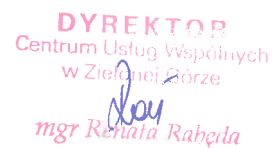 DYREKTOR
Centrum Usług Wspólnych
w Zielonej Górze
mgr Renata Rahęda